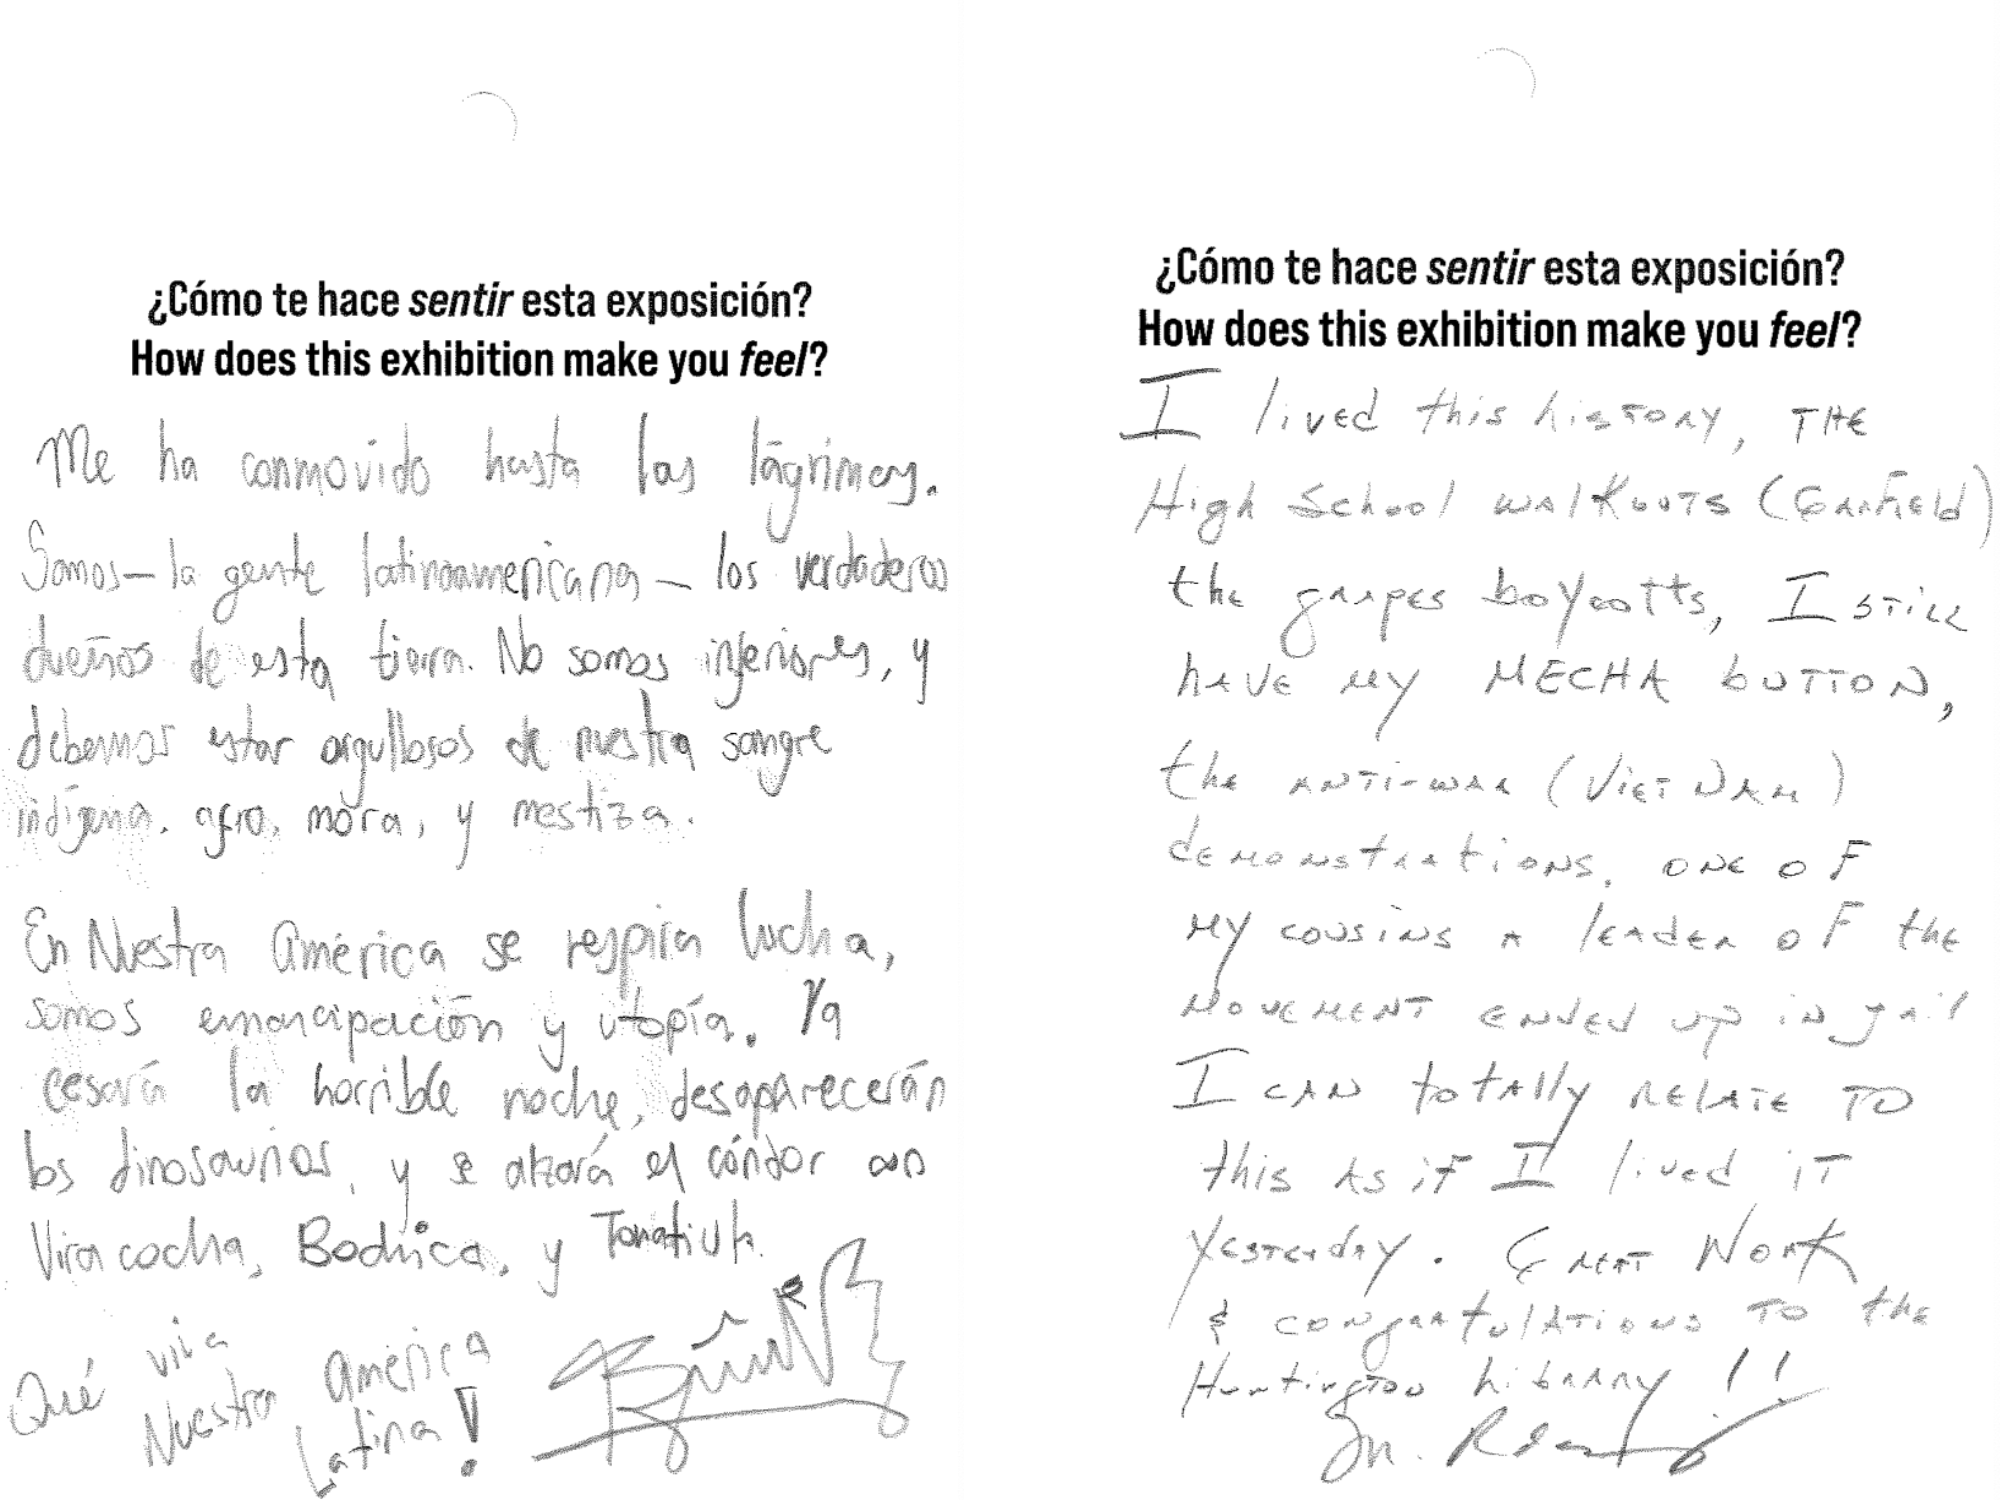 ¿Cómo te hace sentir esta exposición?
How does this exhibition make you feel?
Me ha conmovido hasta las lágrimas.
Somos – la gente latinoamericana – los verdaderos
dueños de esta tierra. No somos inferiores, y
debemos estar orgullosos de nuestra sangre
indígena, afro, mora, y mestiza.
En Nuestra América se respira lucha,
somos emancipación y utopía. Ya
cesará la horrible noche, desaparecerán
los dinosaurios, y se alzará el cóndor con
Viracocha, Bochica, y Tonatiuh.
Qué viva
Nuestra América
Latina!
¿Cómo te hace sentir esta exposición?
How does this exhibition make you feel?
I lived this history, THE
High School walkouts (Garfield)
the grapes boycotts, I still
have my MECHA button,
the anti-war (Viet Nam)
demonstrations, one of
my cousins a leader of the
movement ended up in jail
I can totally relate to
this as if I lived it
yesterday. Great Work
& congratulations to the
Huntington Library!!